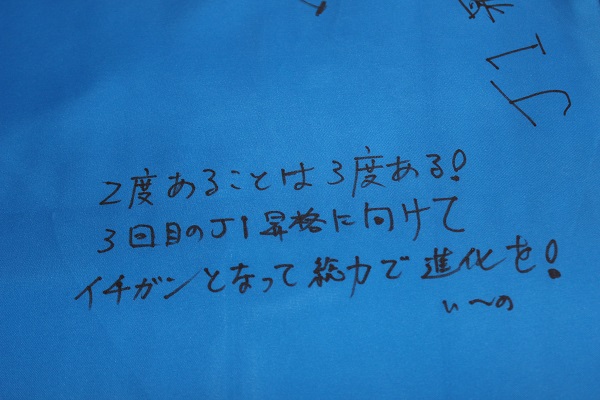 2度あることは3度ある!
3回目のJ1昇格に向けて
イチガンとなって総力で進化を!
い〜の
J1